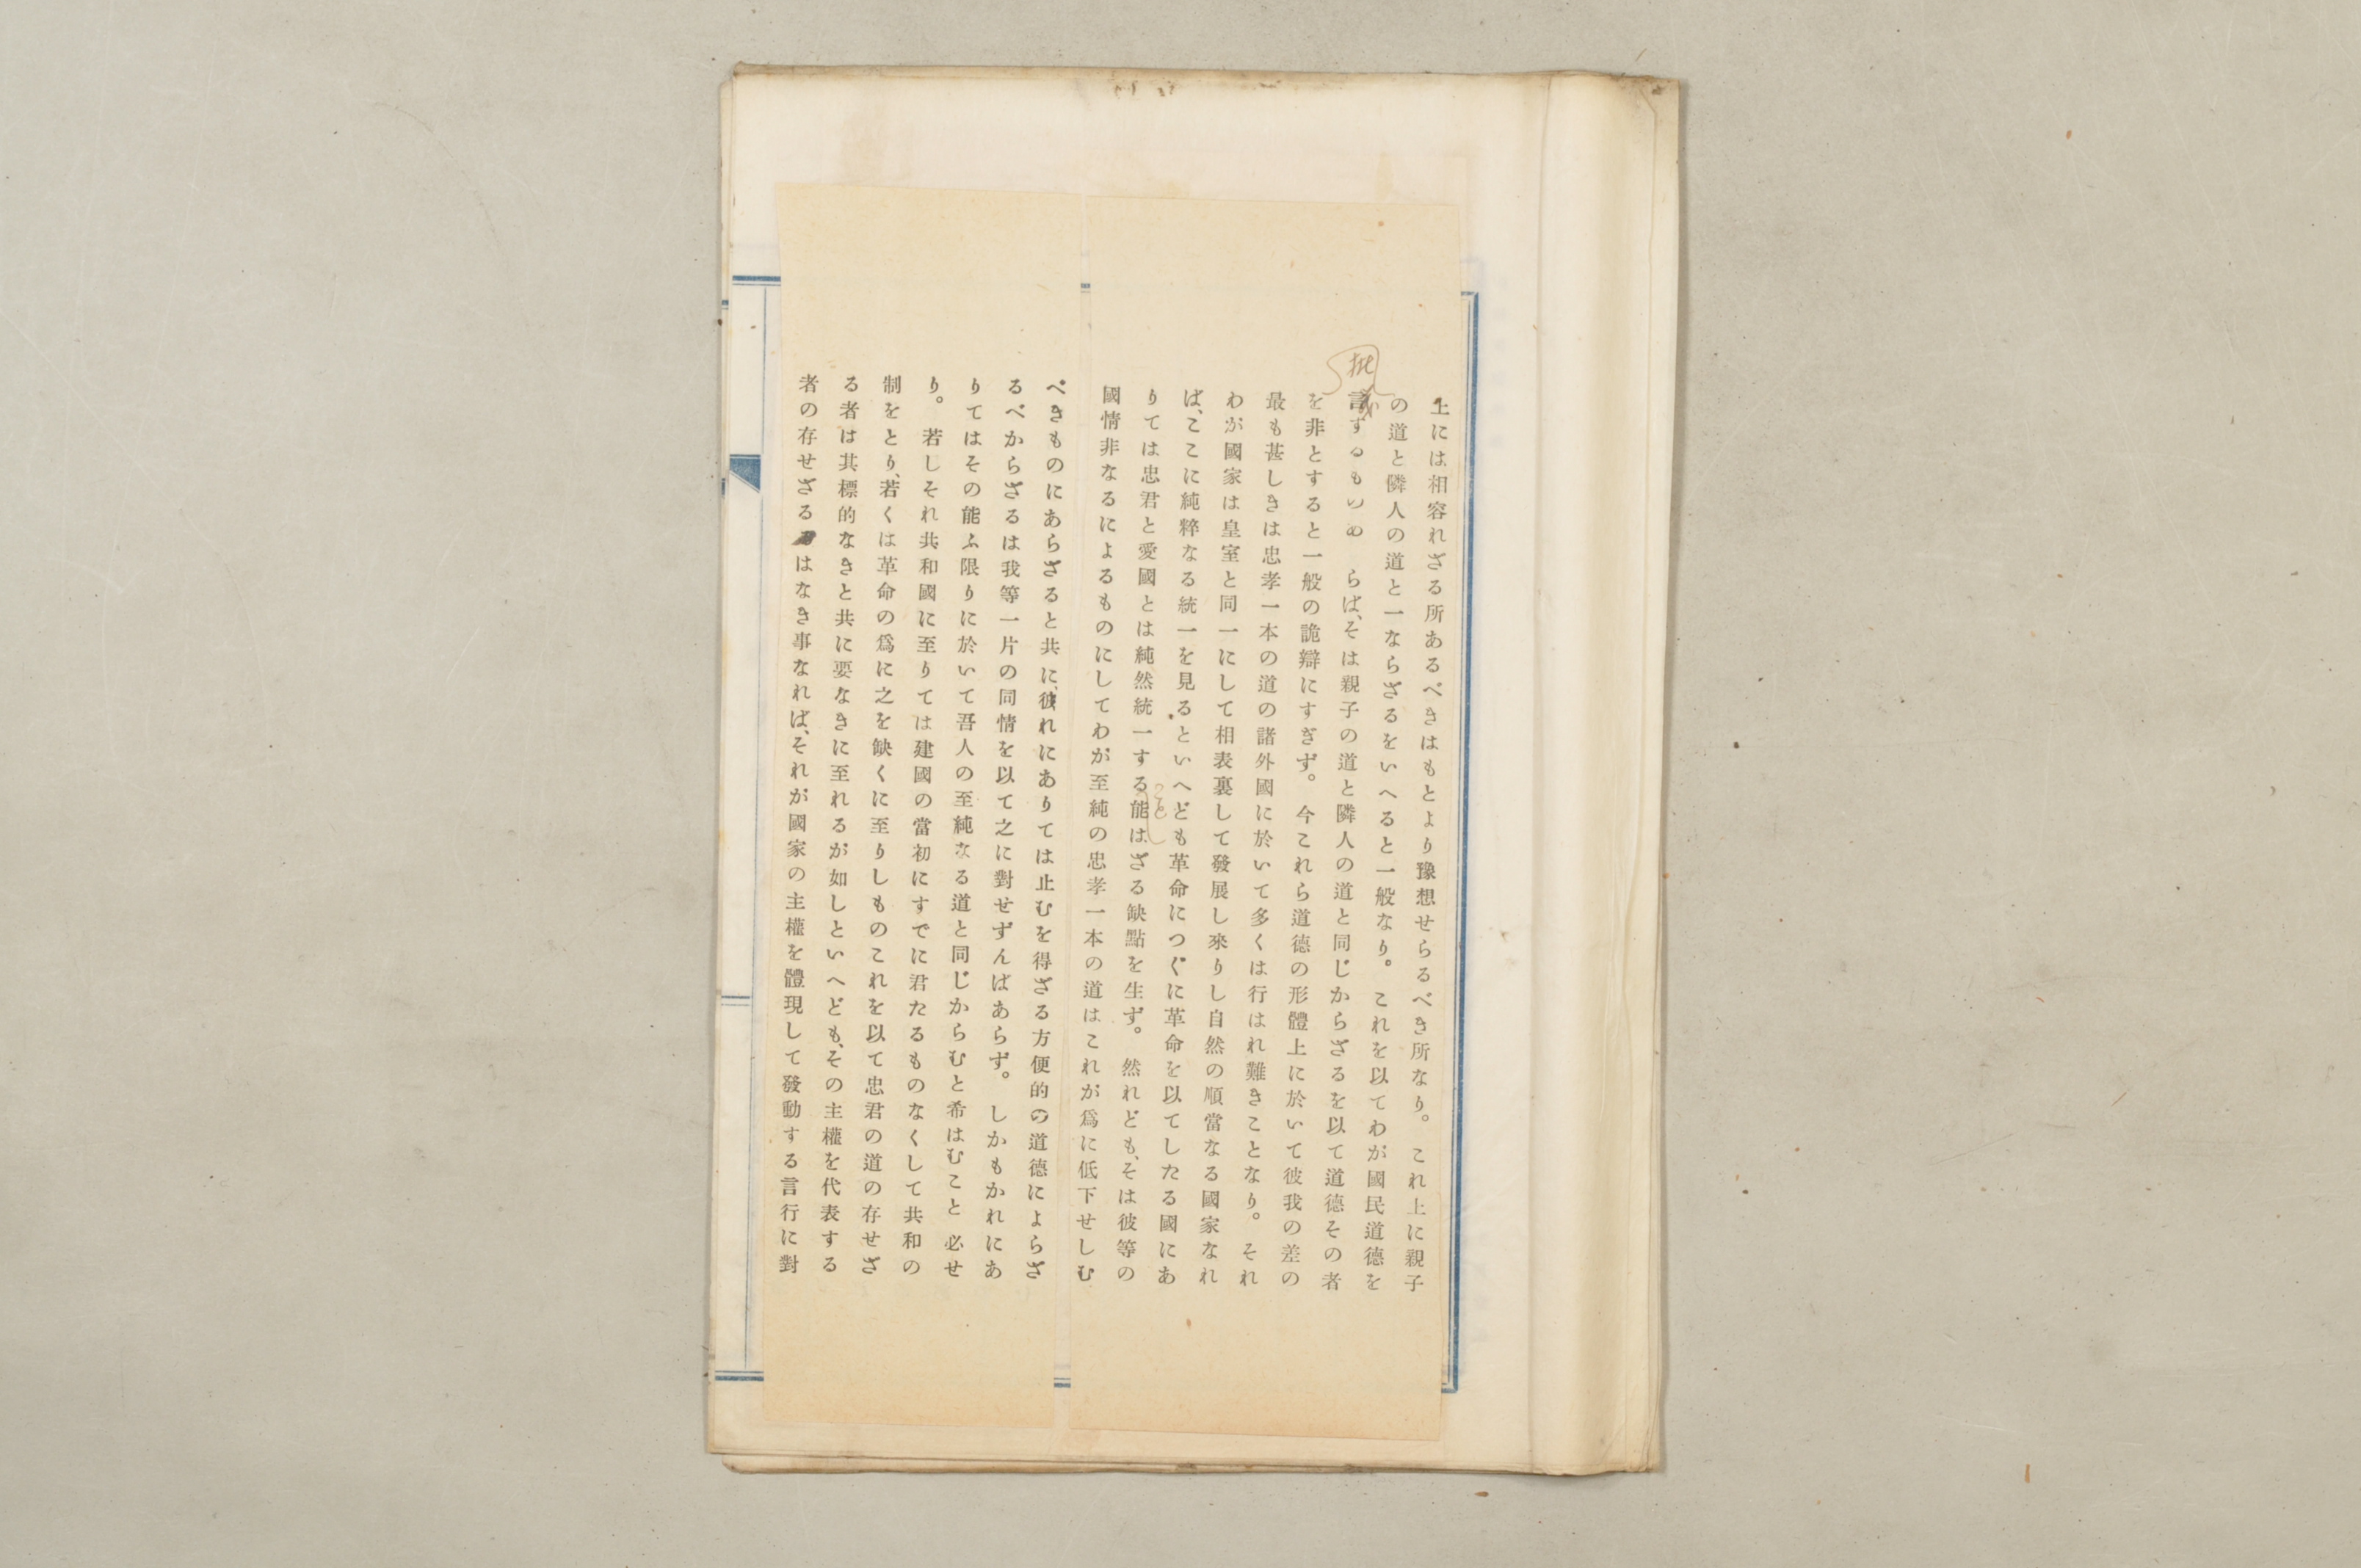 上には相容れざる所あるべきはもとより豫想せらるべき所なり。これ上に親子
の道と隣人の道と一ならざるをいへると一般なり。これを以てわが國民道德を
批
言するものあらば、そは親子の道と隣人の道と同じからざるを以て道德その者
を非とすると一般の詭辯にすぎず。今これら道德の形體上に於いて彼我の差の
最も甚しきは忠孝一本の道の諸外國に於いて多くは行はれ難きことなり。それ
わが國家は皇室と同一にして相表裏して發展し來りし自然の順當なる國家なれ
ば、ここに純粹なる統一を見るといへども革命につぐに革命を以てしたる國にあ
りては忠君と愛國とは純然統一する能はざる缺點を生ず。然れども、そは彼等の
國情非なるによるものにしてわが至純の忠孝一本の道はこれが爲に低下せしむ
べきものにあらざると共に、彼れにありては止むを得ざる方便的の道德によらざ
るべからざるは我等一片の同情を以て之に對せずんばあらず。しかもかれにあ
りてはその能ふ限りに於いて吾人の至純なる道と同じからむと希はむこと必せ
り。若しそれ共和國に至りては建國の當初にすでに君たるものなくして共和の
制をとり、若くは革命の爲に之を缺くに至りしものこれを以て忠君の道の存せざ
る者は其標的なきと共に要なきに至れるが如しといへども、その主權を代表する
者の存せざるはなき事なれば、それが國家の主權を體現して發動する言行に對